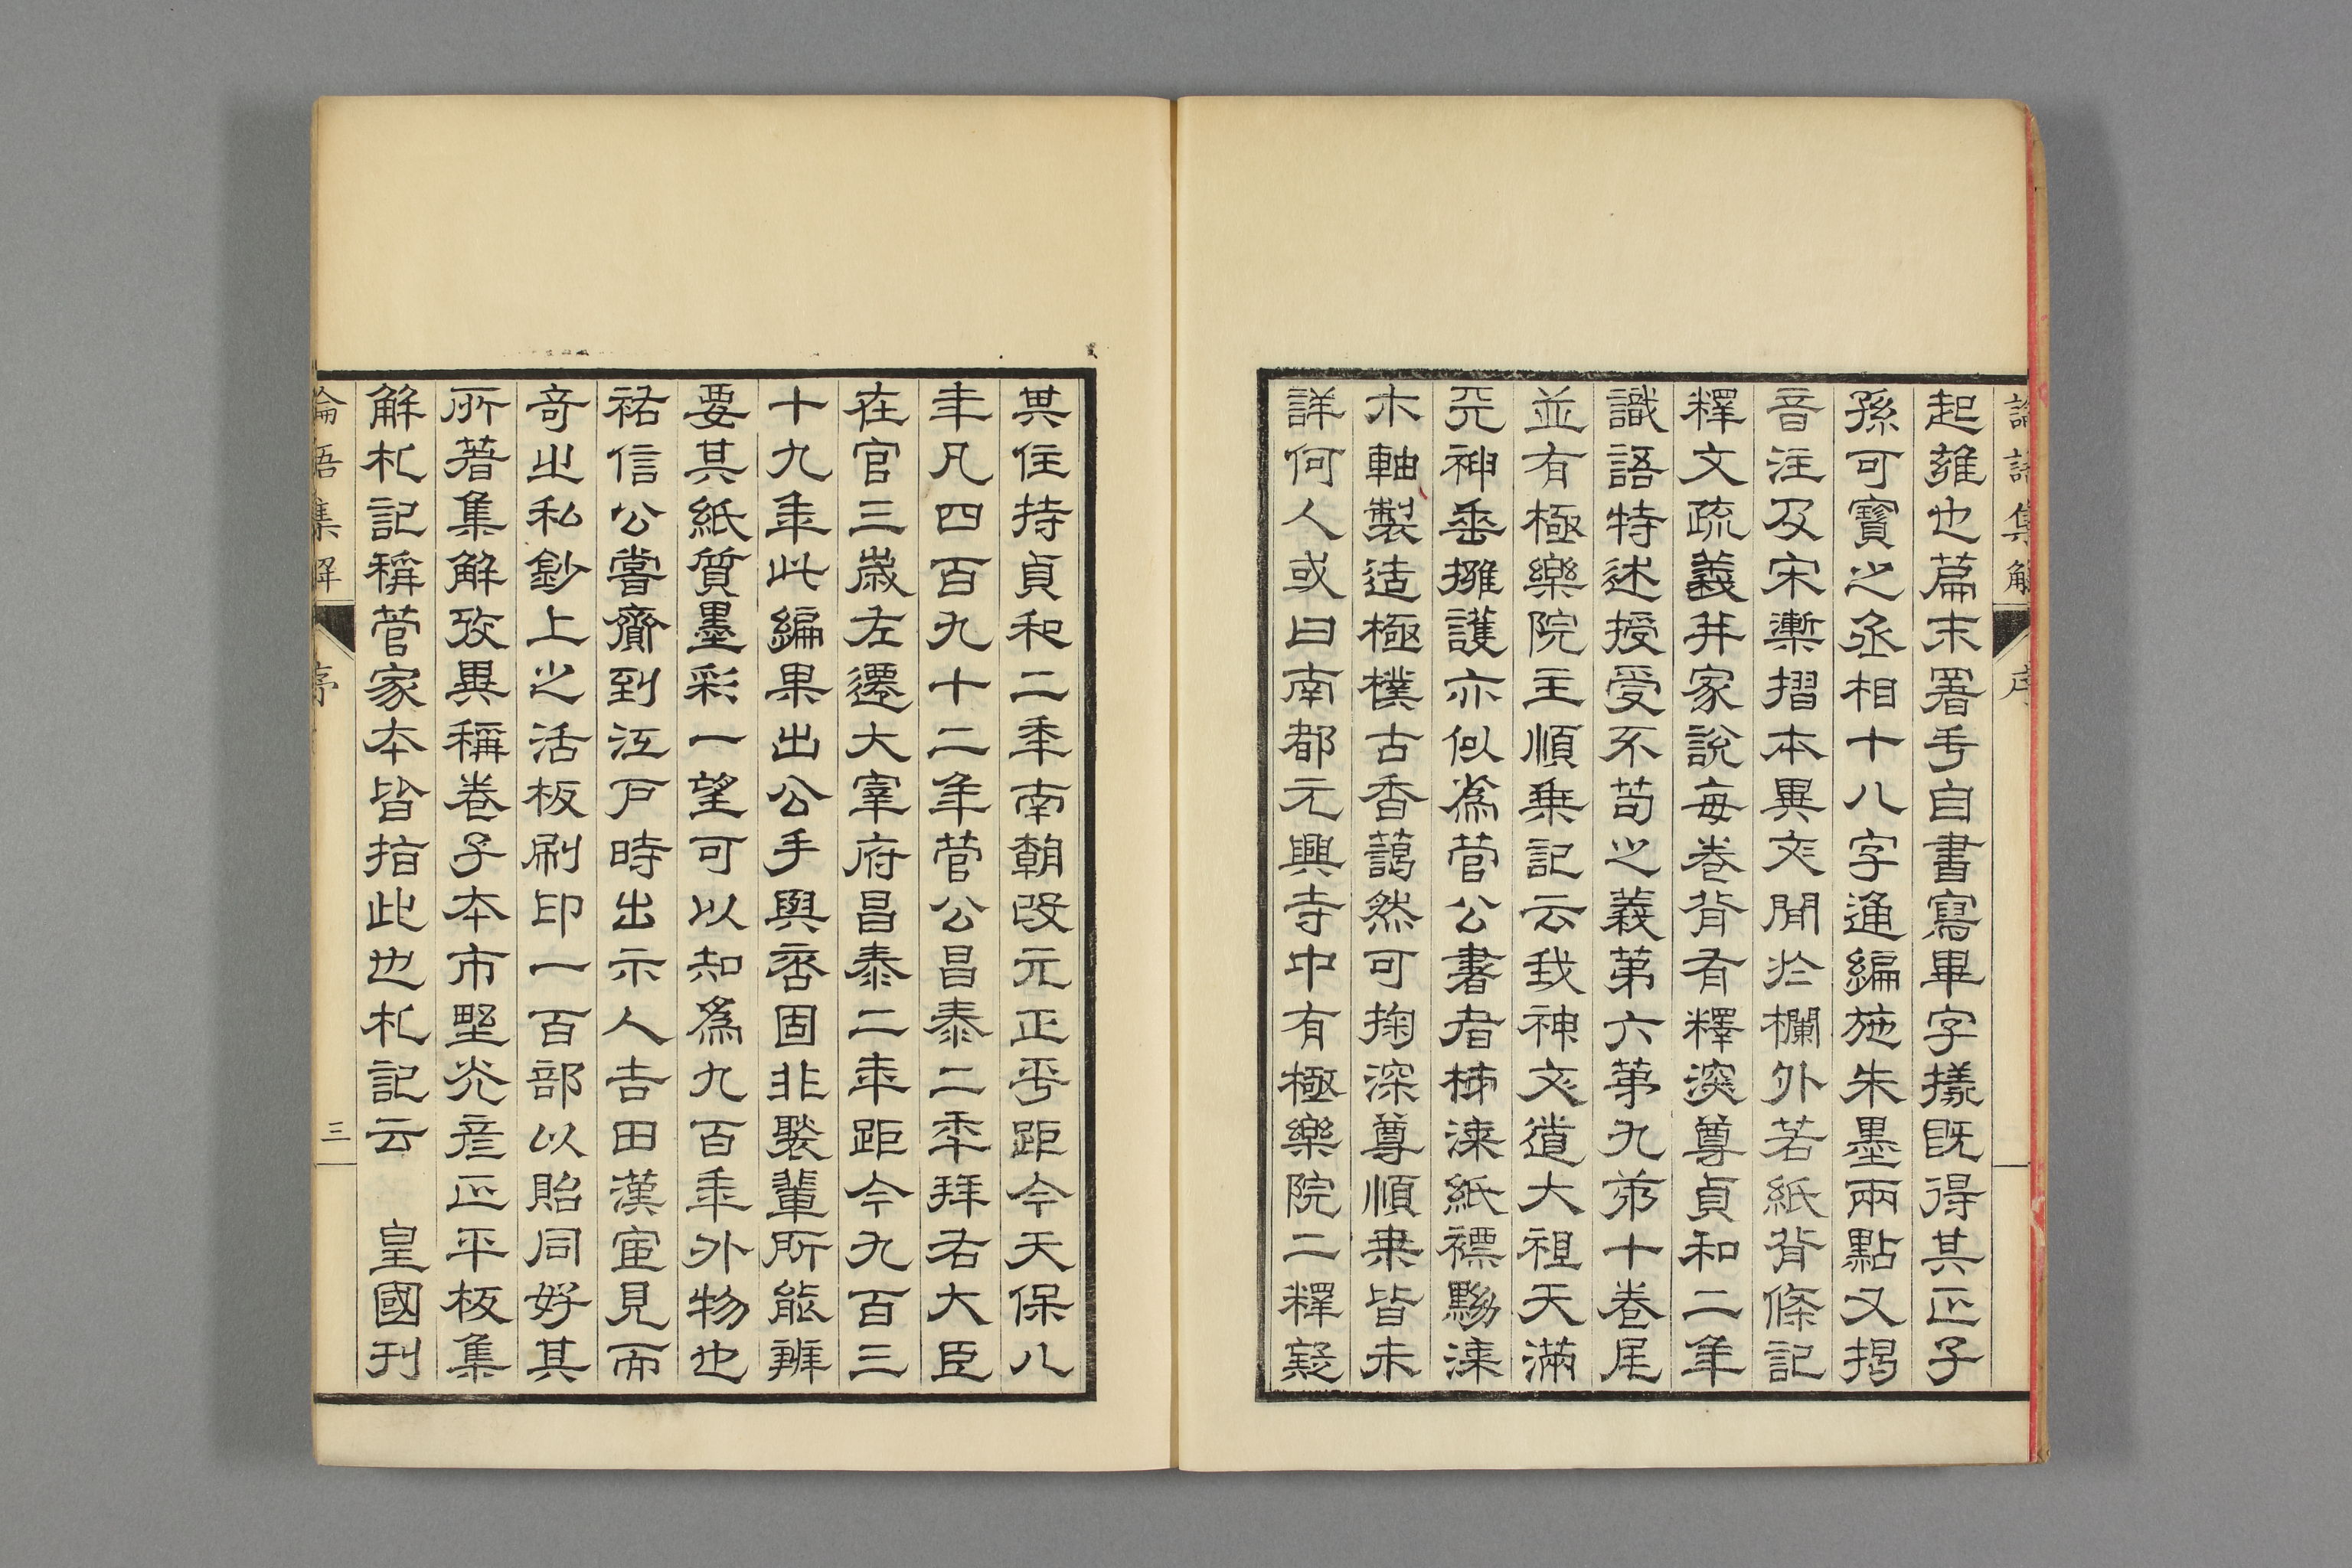 論語集解 序
起雖也篇末署手自書寫畢字㨾既得其正子
孫可寶之丞相十八字通編施朱墨兩點又揭
音注及宋槧摺本異文閒於欄外若紙背條記
釋文疏義并家說每卷背有釋深尊貞和二年
識語特述授受不苟之義第六第九第十卷尾
並有極樂院主順乗記云我神文道大祖天滿
天神垂擁護亦似為菅公書者柹漆紙褾黝漆
木軸製造極樸古香藹然可掬深尊順乗皆未
詳何人或曰南都元興寺中有極樂院二釋疑
其住持貞和二年南朝改元正平距今天保八
年凡四百九十二年菅公昌泰二年拜右大臣
在官三歲左遷大宰府昌泰二年距今九百三
十九年此編果出公手與否固非褧輩所能辨
要其紙質墨彩一望可以知為九百年外物也
祐信公嘗齎到江戶時出示人吉田漢宦見而
奇㞢私鈔上之活板刷印一百部以貽同好其
所著集解攷異稱卷子本市野光彥正平板集
解札記稱菅家本皆指此也札記云　皇國刊
論語集解 序 三